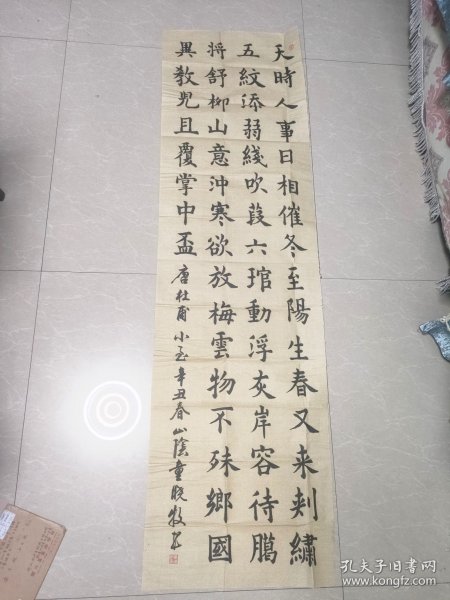 天時人事日相催冬至陽生春又来刺繡
五紋添弱綫吹葭六琯動浮灰岸容待臈
将舒柳山意沖寒欲放梅雲物不殊鄉國
異教児且覆掌中盃 唐杜甫小至辛丑春山陰童晓牧
孔夫子旧书网
kongfz.com